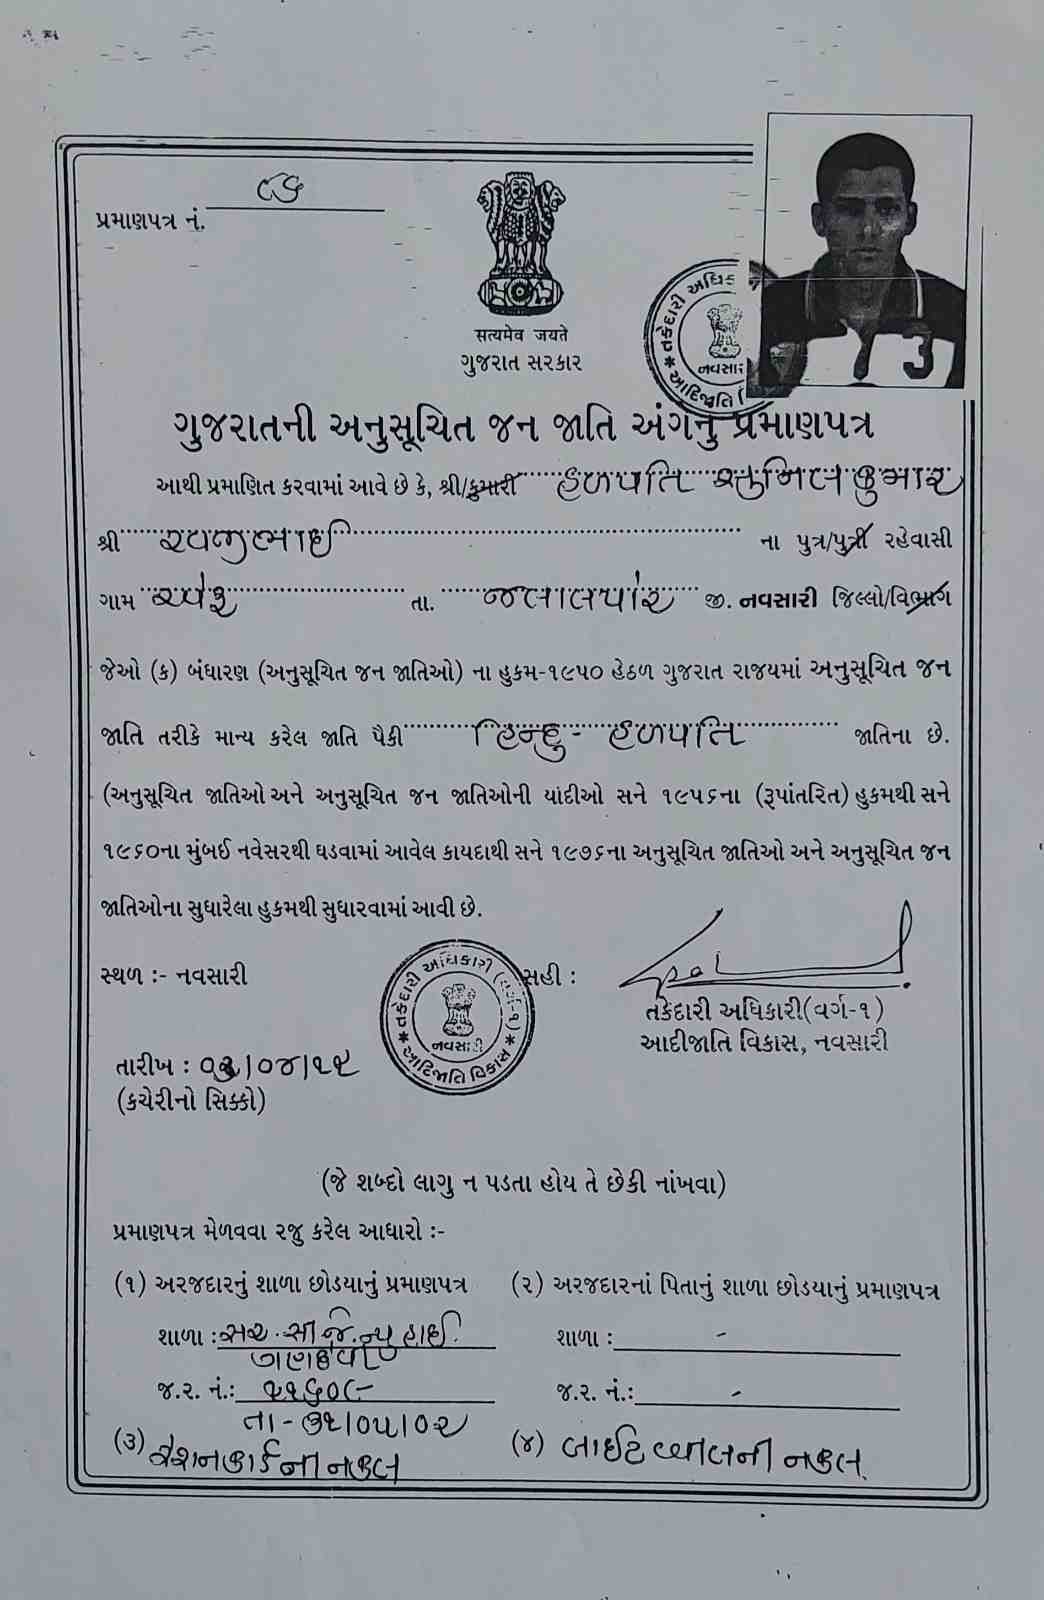 પ્રમાણપત્ર નં. ૯૬
સત્યમેવ જયતે
ગુજરાત સરકાર
તકેદારી અધિક
નવસારી
આદિજાતિ વિ
3
ગુજરાતની અનુસૂચિત જન જાતિ અંગેનું પ્રમાણપત્ર
આથી પ્રમાણિત કરવામાં આવે છે કે, શ્રી/કુમારી હળપતિ સુનિલકુમાર
શ્રી રવજીભાઈ ના પુત્ર/પુત્રી રહેવાસી
ગામ તા. જલાલપોર જી. નવસારી જિલ્લો/વિભાગ
જેઓ (ક) બંધારણ (અનુસૂચિત જન જાતિઓ) ના હુકમ-૧૯૫૦ હેઠળ ગુજરાત રાજયમાં અનુસૂચિત જન
જાતિ તરીકે માન્ય કરેલ જાતિ પૈકી હિન્દુ - હળપતિ જાતિના છે.
(અનુસૂચિત જાતિઓ અને અનુસૂચિત જન જાતિઓની યાદીઓ સને ૧૯૫૬ના (રૂપાંતરિત) હુકમથી સને
૧૯૬૦ના મુંબઈ નવેસરથી ઘડવામાં આવેલ કાયદાથી સને ૧૯૭૬ના અનુસૂચિત જાતિઓ અને અનુસૂચિત જન
જાતિઓના સુધારેલા હુકમથી સુધારવામાં આવી છે.
સ્થળ :- નવસારી
સહી :
તકેદારી અધિકારી (વર્ગ-૧)
નવસારી
આદિજાતિ વિકાસ
તકેદારી અધિકારી(વર્ગ-૧)
આદીજાતિ વિકાસ, નવસારી
તારીખ :
(કચેરીનો સિક્કો)
(જે શબ્દો લાગુ ન પડતા હોય તે છેકી નાંખવા)
પ્રમાણપત્ર મેળવવા રજુ કરેલ આધારો :-
(૧) અરજદારનું શાળા છોડયાનું પ્રમાણપત્ર
શાળા : સર. સી.જે. ન્યુ હાઈ.
ગણદેવી
જ.ર. નં.: ૨૧૬૦૯
તા - ૩૧/૦૫/૦૨
(૨) અરજદારનાં પિતાનું શાળા છોડયાનું પ્રમાણપત્ર
શાળા : -
જ.ર. નં.: -
(૩) રેશનકાર્ડની નકલ
(૪) લાઈટબીલની નકલ